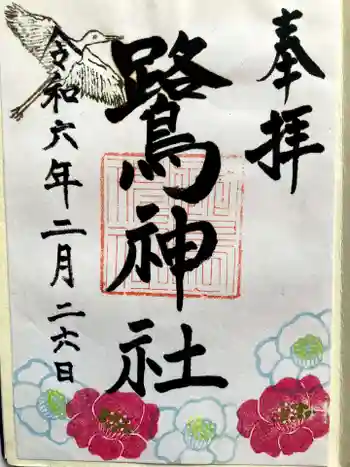 奉拝
鷺神社
令和六年二月二六日